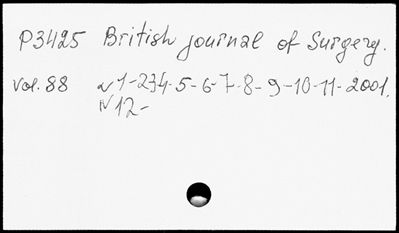 P3425 British journal of Surgery.
Vol. 88 N 1-234-5-6-7-8-9-10-11-2001.
N 12-